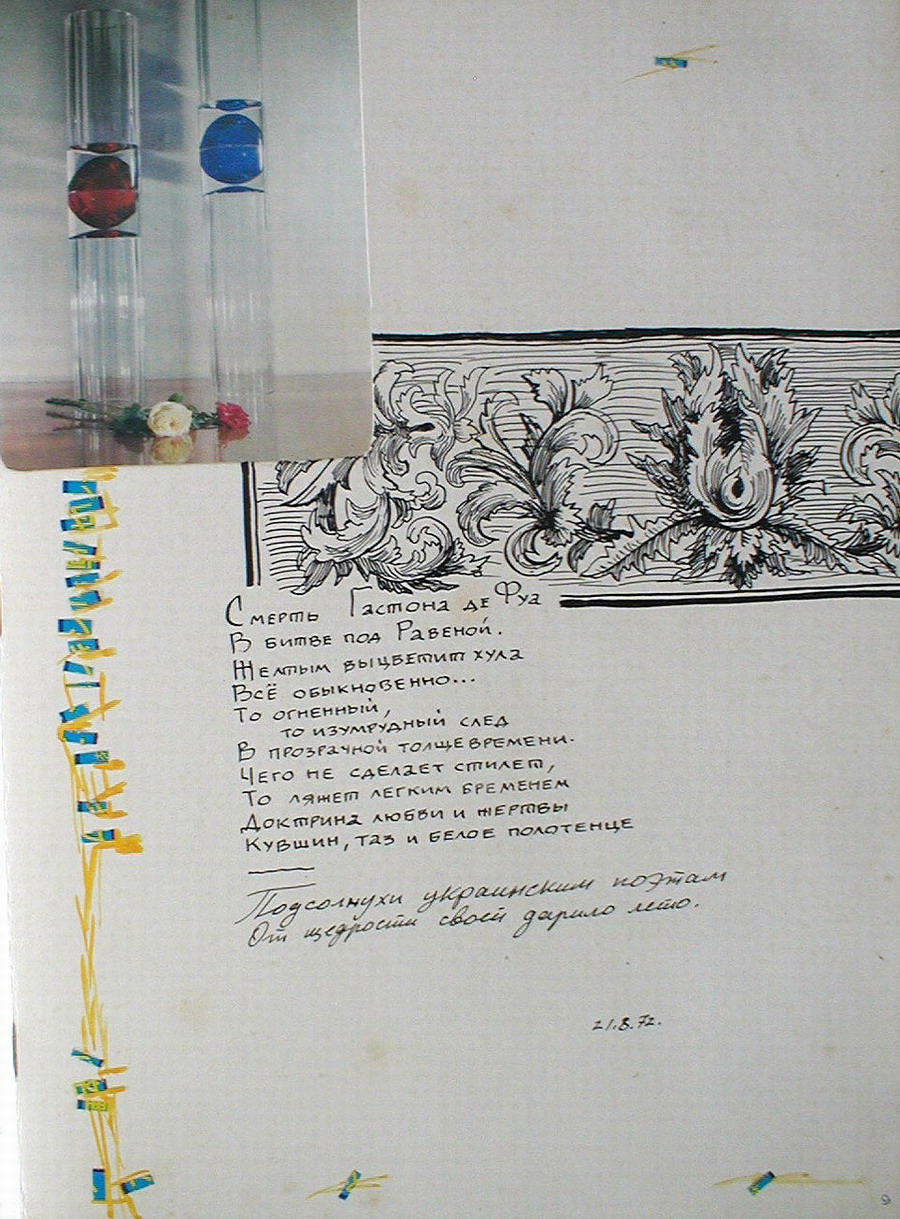 Смерть Гастона де Фуа
В битве под Равеной.
Желтым выцветит хула
Всё обыкновенно...
То огненный,
то изумрудный след
В прозрачной толще времени.
Чего не сделает стилет,
То ляжет легким бременем
Доктрина любви и жертвы
Кувшин, таз и белое полотенце
Подсолнухи украинским поэтам
От щедрости своей дарило лето.
21.8.72.